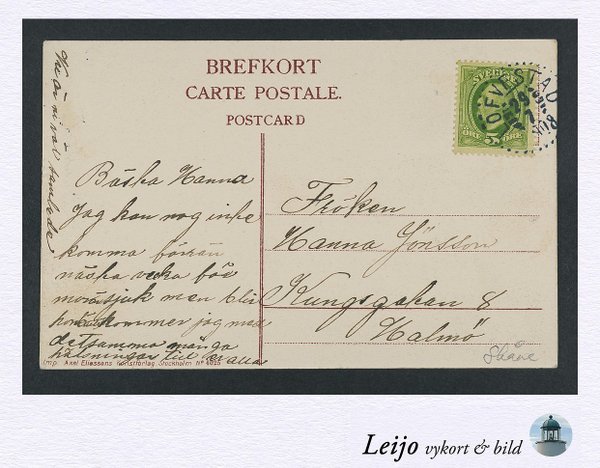 BREFKORT
CARTE POSTALE.
POSTCARD
SVERIGE
5 ÖRE
ÖFVESTAD
29
7
1908
Bästa Hanna
Jag kan nog inte
komma förrän
nästa vecka för
mor sjuk men blir
kommer jag med
detsamma många
hälsningar till er alla
Fröken
Hanna Jönsson
Kungsgatan 8
Malmö
Skåne
Imp. Axel Eliassons Konstförlag, Stockholm Nº 4025
Leijo vykort & bild